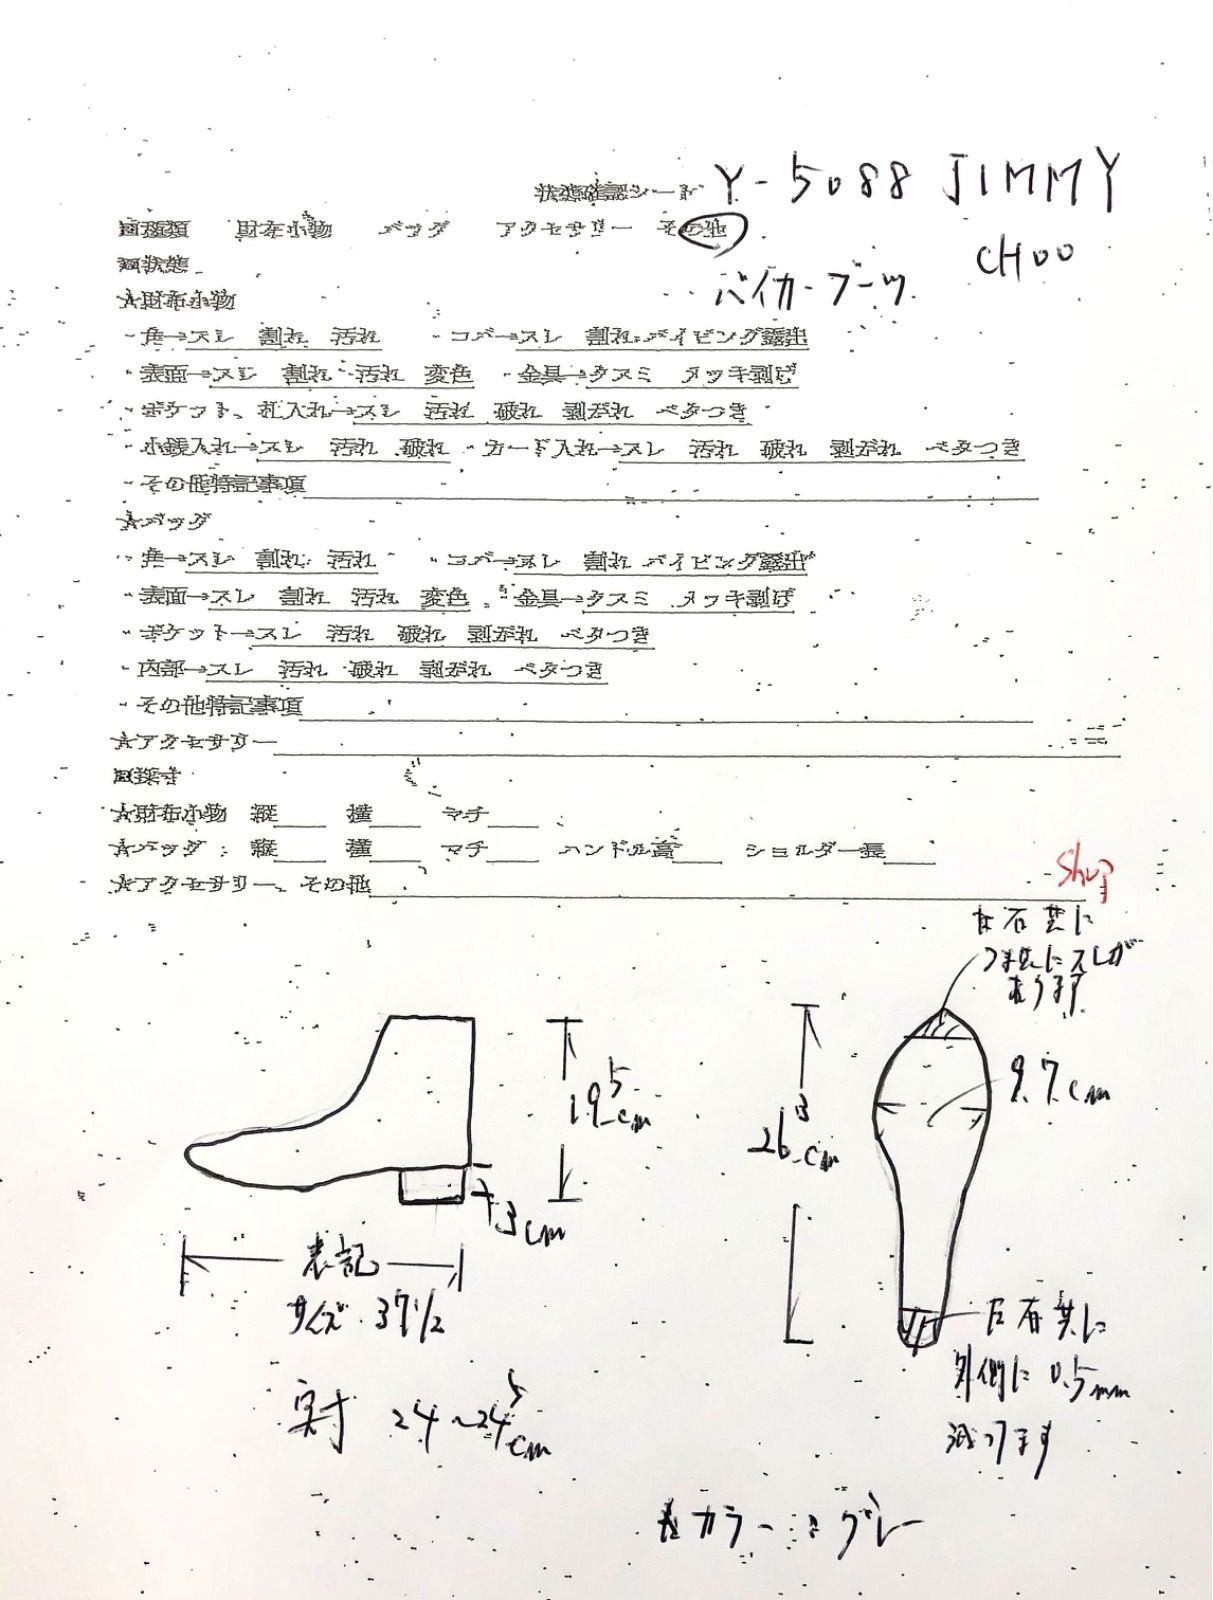 状態確認シート Y-5088 JIMMY
CHOO
■種類 財布小物 バッグ アクセサリー その他
バイカーブーツ
■状態
★財布小物
・角→スレ 割れ 汚れ ・コバ→スレ 割れ パイピング露出
・表面→スレ 割れ 汚れ 変色 ・金具→クスミ メッキ剥げ
・ポケット、札入れ→スレ 汚れ 破れ 剥がれ ベタつき
・小銭入れ→スレ 汚れ 破れ ・カード入れ→スレ 汚れ 破れ 剥がれ ベタつき
・その他特記事項
★バッグ
・角→スレ 割れ 汚れ ・コバ→スレ 割れ パイピング露出
・表面→スレ 割れ 汚れ 変色 ・金具→クスミ メッキ剥げ
・ポケット→スレ 汚れ 破れ 剥がれ ベタつき
・内部→スレ 汚れ 破れ 剥がれ ベタつき
・その他特記事項
★アクセサリー
■採寸
★財布小物 縦 横 マチ
★バッグ 縦 横 マチ ハンドル高 ショルダー長
★アクセサリー、その他
Shop
左右共に
つま先にスレが
あります
19.5cm
3cm
表記
サイズ 37 1/2
実寸 24~24.5cm
26.3cm
9.7cm
左右共に
外側に 0.5mm
減ります
★カラー:グレー